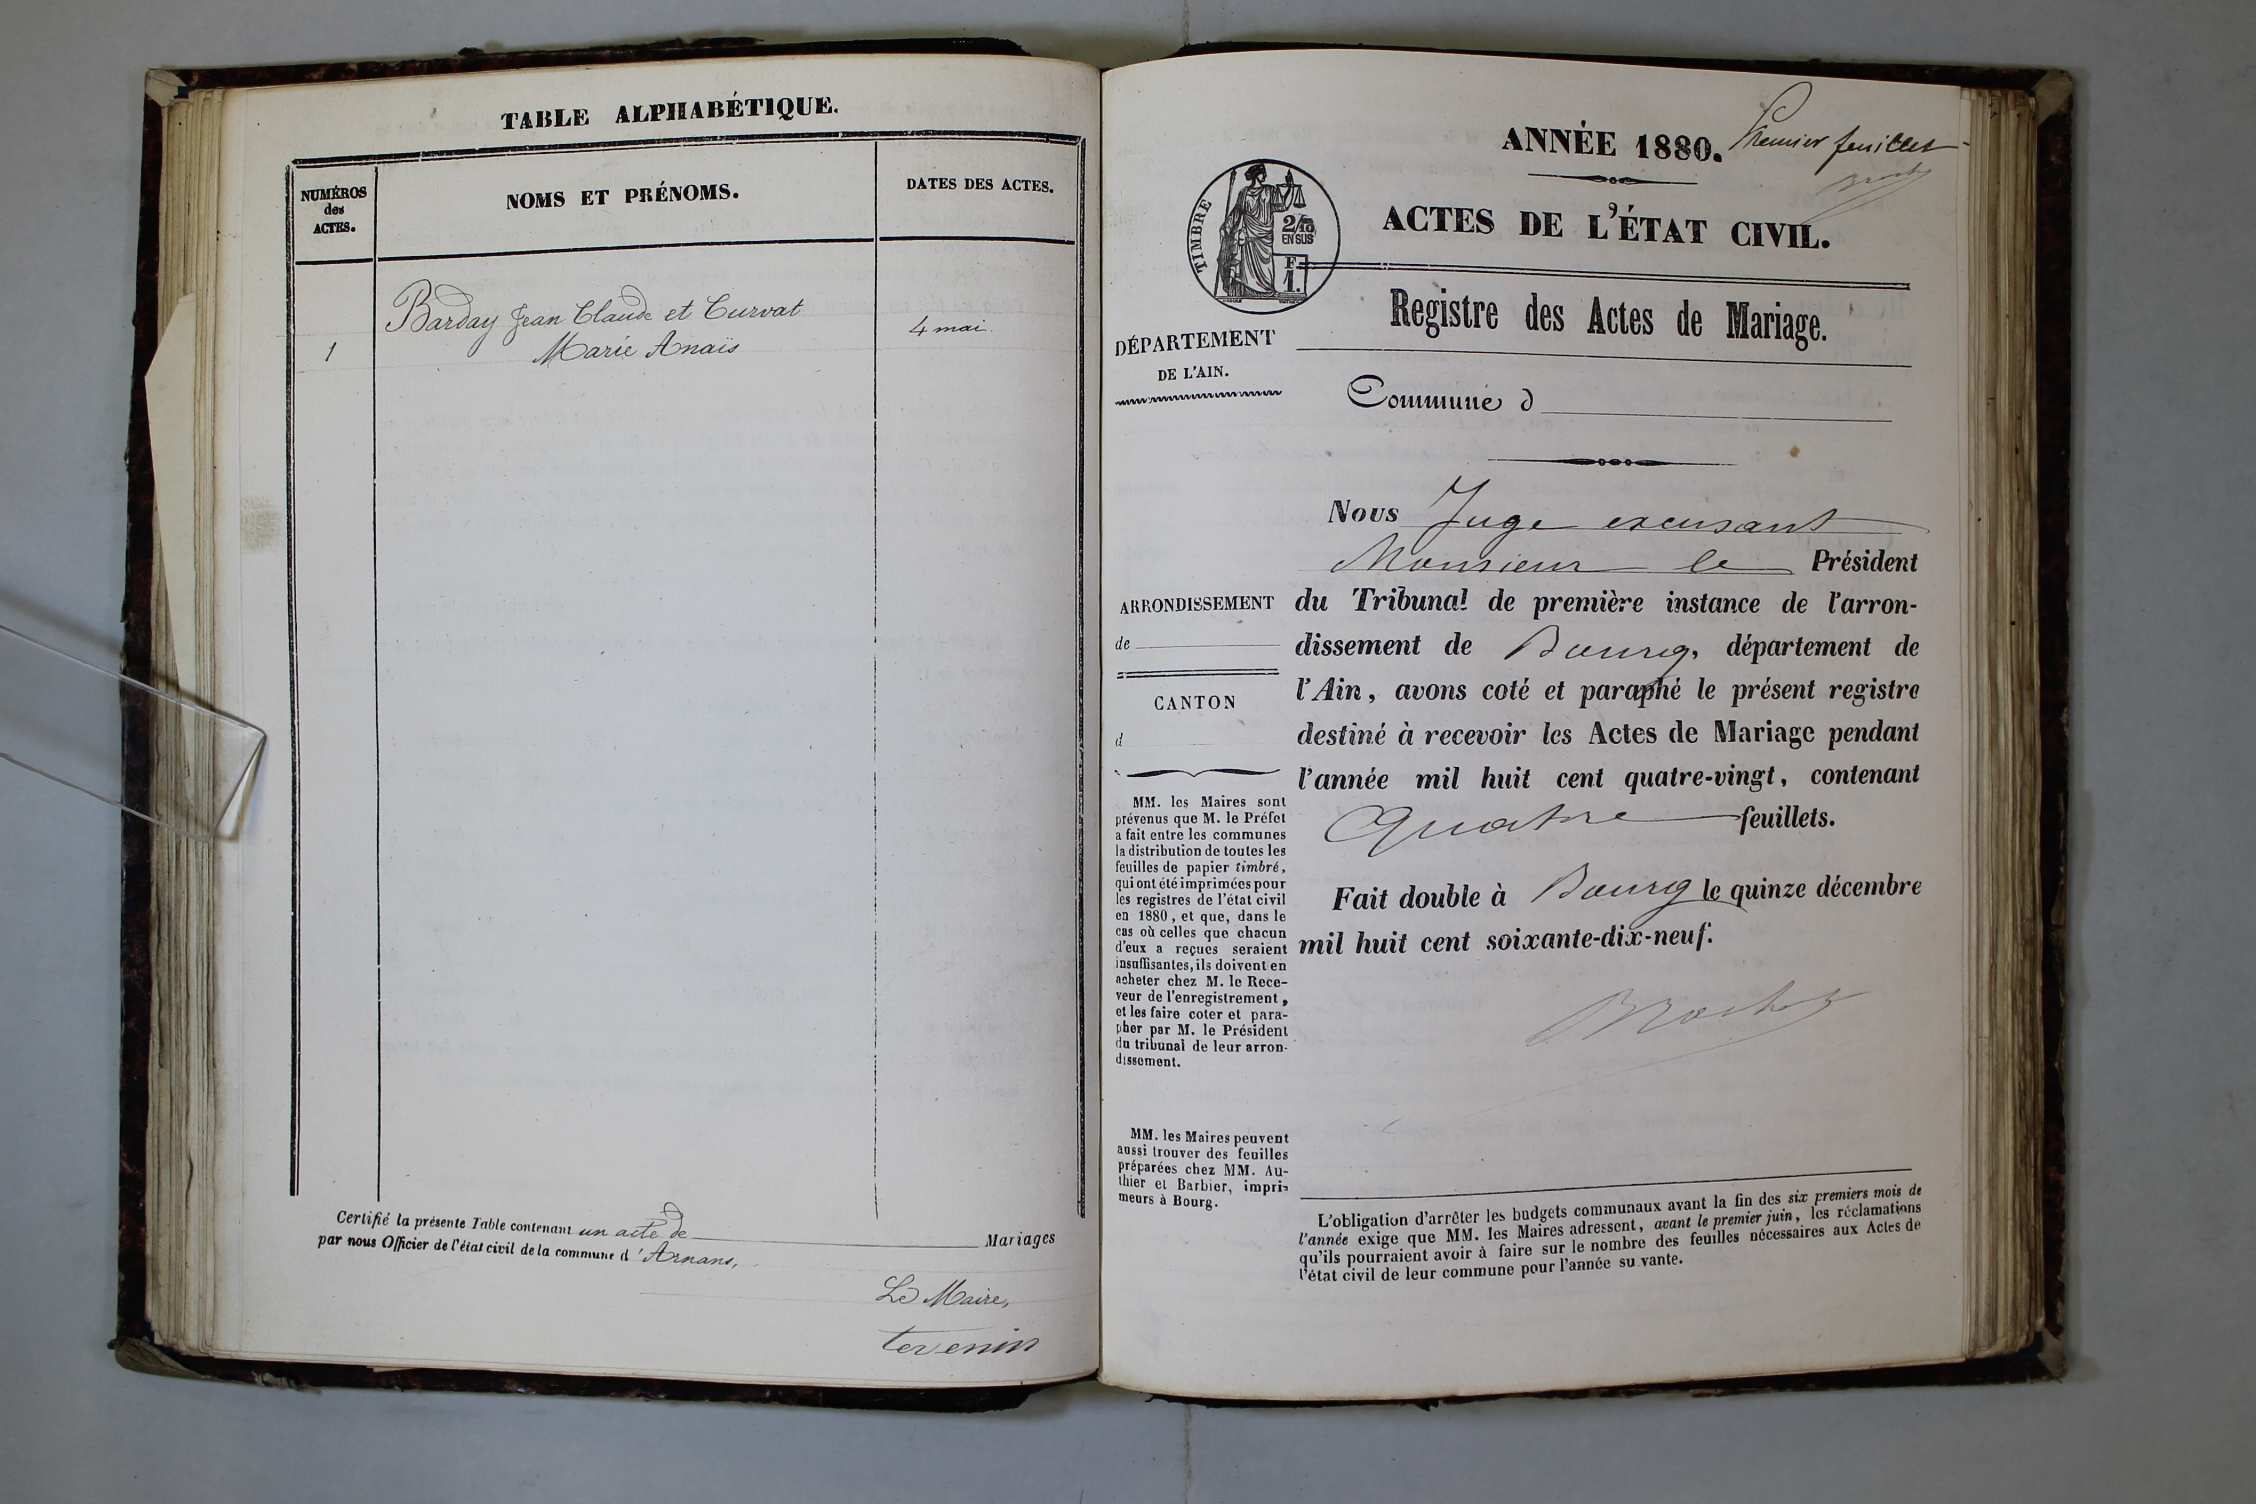 TABLE ALPHABÉTIQUE.
NUMÉROS
des
ACTES.
NOMS ET PRÉNOMS.
DATES DES ACTES.
Barday Jean Claude et Curvat
1
Marie Anaïs
4 mai.
Certifié la présente Table contenant un acte de Mariages
par nous Officier de l'état civil de la commune d'Arnans,
Le Maire,
tevenin
ANNÉE 1880.
Premier feuillet
ACTES DE L'ÉTAT CIVIL.
TIMBRE
2/10
EN SUS
F.
1.
Registre des Actes de Mariage.
DÉPARTEMENT
DE L'AIN.
Commune d
Nous Juge excusant
Monsieur le Président
du Tribunal de première instance de l'arron-
dissement de Bourg, département de
l'Ain, avons coté et paraphé le présent registre
destiné à recevoir les Actes de Mariage pendant
l'année mil huit cent quatre-vingt, contenant
Quatre feuillets.
Fait double à Bourg le quinze décembre
mil huit cent soixante-dix-neuf.
ARRONDISSEMENT
de
CANTON
d
MM. les Maires sont
prévenus que M. le Préfet
a fait entre les communes
la distribution de toutes les
feuilles de papier timbré,
qui ont été imprimées pour
les registres de l'état civil
en 1880, et que, dans le
cas où celles que chacun
d'eux a reçues seraient
insuffisantes, ils doivent en
acheter chez M. le Rece-
veur de l'enregistrement,
et les faire coter et para-
pher par M. le Président
du tribunal de leur arron-
dissement.
MM. les Maires peuvent
aussi trouver des feuilles
préparées chez MM. Au-
thier et Barbier, impri-
meurs à Bourg.
L'obligation d'arrêter les budgets communaux avant la fin des six premiers mois de
l'année exige que MM. les Maires adressent, avant le premier juin, les réclamations
qu'ils pourraient avoir à faire sur le nombre des feuilles nécessaires aux Actes de
l'état civil de leur commune pour l'année suvante.